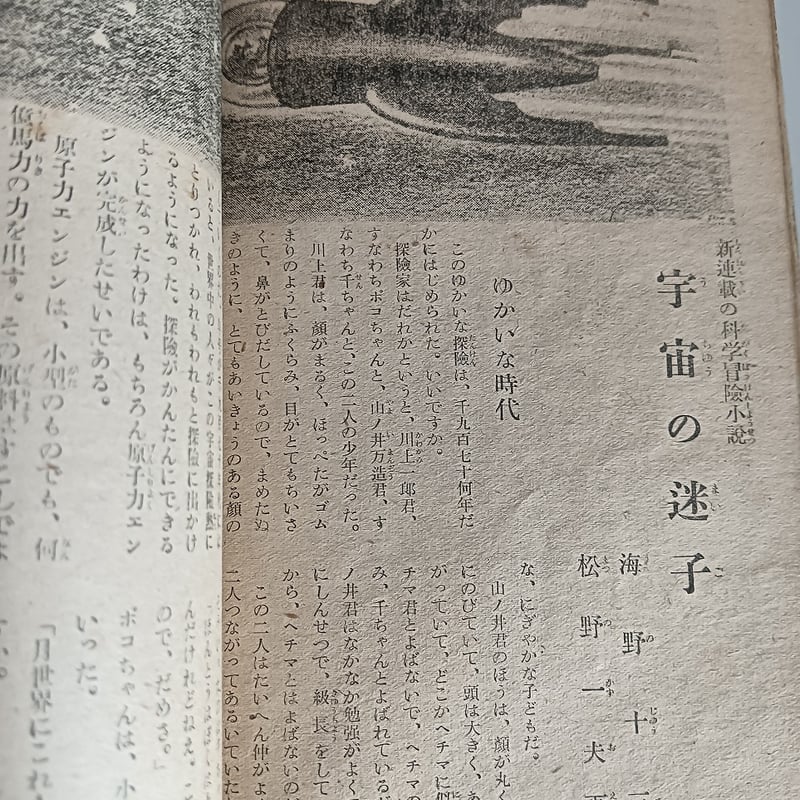 新連載の科学冒險小説
宇宙の迷子
海野十
松野一夫
ゆかいな時代
このゆかいな探險は、千九百七十何年だ
かにはじめられた。いいですか。
探險家はだれかというと、川上一郎君、
すなわちポコちゃんと、山ノ井万造君、す
なわち千ちゃんと、この二人の少年だった。
川上君は、顔がまるく、ほっぺたがゴム
まりのようにふくらみ、目がとてもちいさ
くて、鼻がとびだしているので、まめたぬ
きのように、とてもあいきょうのある顔の
な、にぎやかな子どもだ。
山ノ井君のほうは、顔が丸く
にのびていて、頭は大きく、あ
がっていて、どこかヘチマに似
チマ君とよばないで、ヘチマの
み、千ちゃんとよばれているが
ノ井君はなかなか勉强がよくで
にしんせつで、級長をして
から、ヘチマとはよばないのだ
この二人はたいへん仲がよ
二人つながってあるいていた
世界中の人々がこの宇宙探險熱に
とりつかれ、われもわれもと探險に出かけ
るようになった。探險がかんたんにできる
ようになったわけは、もちろん原子力エン
ジンが完成したせいである。
原子力エンジンは、小型のものでも、何
億馬力の力を出す。その原料は
んだけれどねえ、こ
ので、だめさ。」
ポコちゃんは、小
いった。
「月世界にこれ